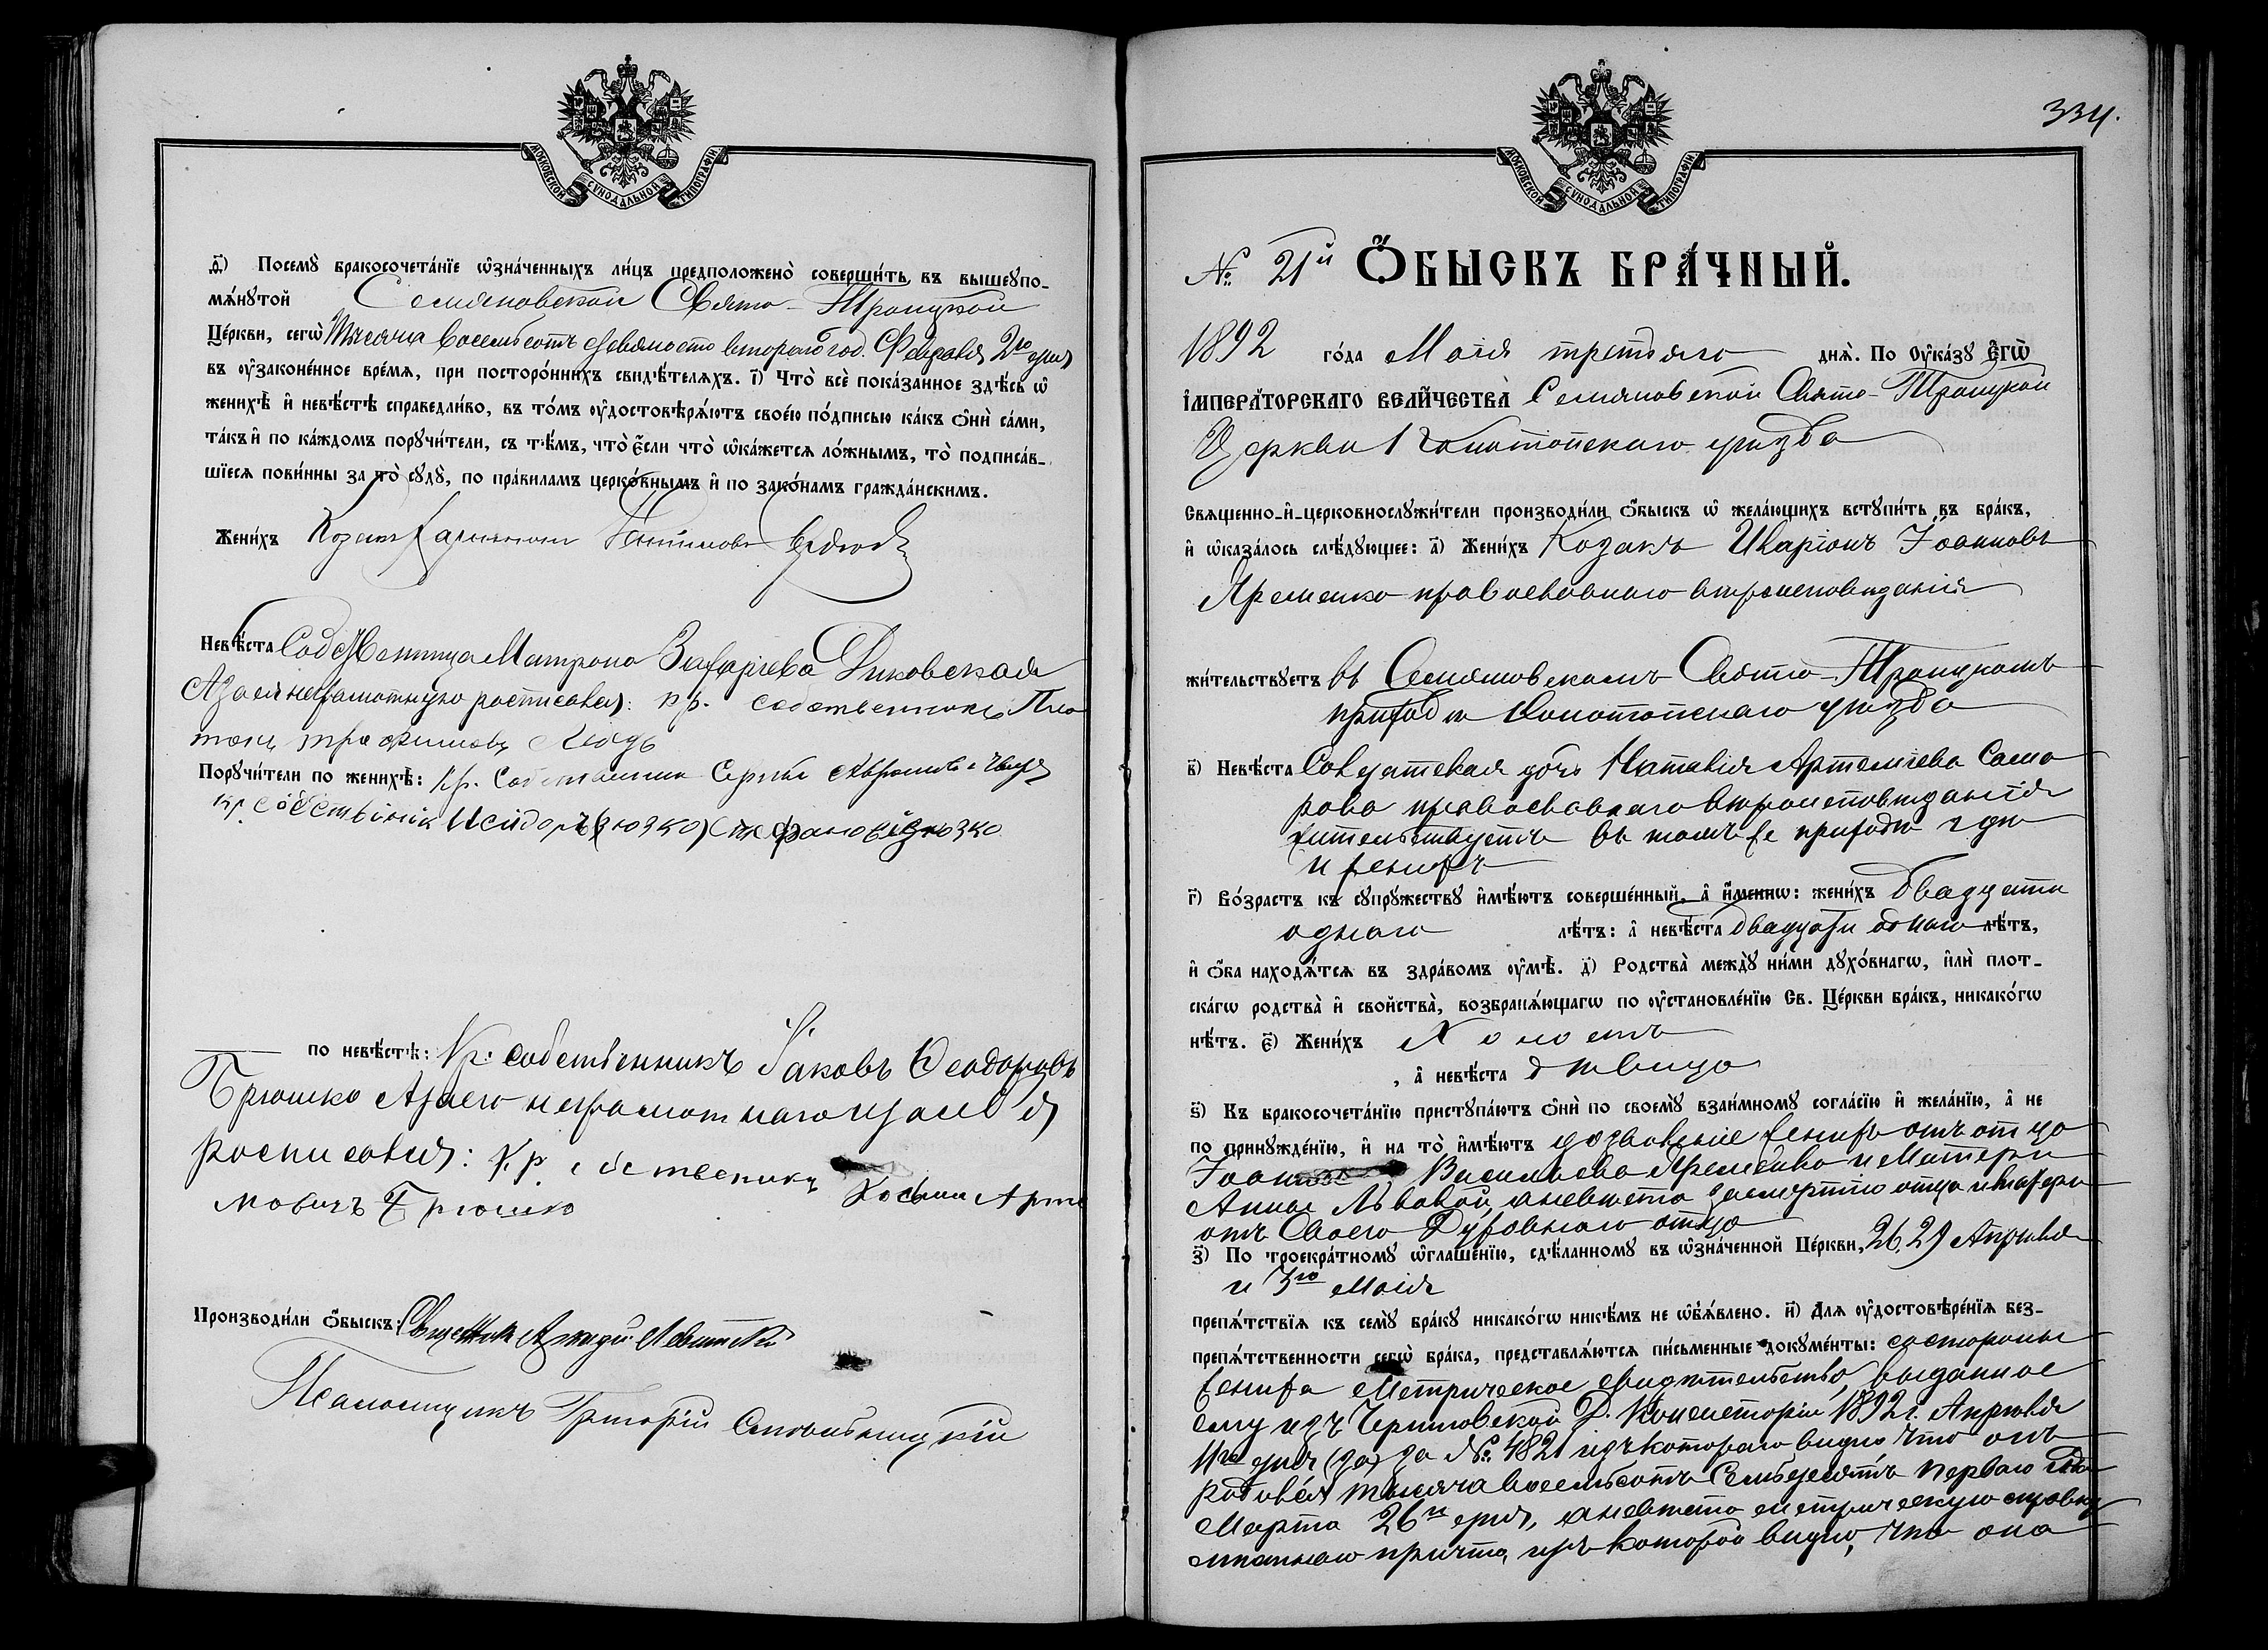 МОСКОВСКОЙ СѴНОДАЛЬНОЙ ТИПОГРАФІИ
ѳ҃) Посемꙋ̀ бракосочета́нїе ѡ҆зна́ченныхъ ли́цъ предположено̀ соверши́ть въ вышеꙋпо-
мѧ́нꙋтой Семяновской Свято-Троицкой
Це́ркви, сегѡ̀ Тысяча восемьсотъ девяносто второго год. Февраля 2го дня
въ ᲂу҆зако́ненное вре́мѧ, при посторо́ннихъ свидѣ́телѧхъ. і҃) Что̀ всѐ пока́занное здѣ́сь ѡ҆
женихѣ̀ и҆ невѣ́стѣ справедли́во, въ то́мъ ᲂу҆достовѣрѧ́ютъ свое́ю по́дписью ка́къ ѻ҆нѝ са́ми,
та́къ и҆ по ка́ждомъ порꙋчи́тели, съ тѣ́мъ, что̀ є҆́сли что̀ ѡ҆ка́жетсѧ ло́жнымъ, то̀ подписа́в-
шїесѧ пови́нны за то̀ сꙋдꙋ̀, по пра́виламъ церко́внымъ и҆ по зако́намъ гражда́нскимъ.
Жени́хъ Козакъ
Невѣ́ста Собственница Матрона Захаріева Диковская
А за ея неграмотную росписался: кр. собственникъ Пла
тонъ Трофимовъ
Порꙋчи́тели по женихѣ̀: Кр. Собственникъ Сергѣй
кр. собственік Исидоръ Стефановъ
по невѣ́стѣ: Кр: собственникъ Іаковъ Ѳеодоровъ
Брюшко А за его неграмотнаго
росписался: Кр. собственикъ Косьма Арте
мовичъ Брюшко
Производи́ли ѻ҆́быскъ: Священникъ Левитскій
Псаломщикъ Григорій
334.
МОСКОВСКОЙ СѴНОДАЛЬНОЙ ТИПОГРАФІИ
№ 21й Ѻ҆́БЫСКЪ БРА́ЧНЫЙ.
1892 го́да Маія третьяго днѧ̀. По ᲂу҆ка́зꙋ Є҆гѡ̀
І҆мпера́торскагѡ вели́чества Семяновской Свято-Троицкой
Церкви Конотопскаго уѣзда
Свѧще́нно-и҆-церковнослꙋжи́тели производи́ли ѻ҆́быскъ ѡ҆ жела́ющихъ встꙋпи́ть въ бра́къ,
и҆ ѡ҆каза́лось слѣ́дꙋющее: а҃) Жени́хъ Козакъ Иларіонъ Іоанновъ
Яременко православнаго вѣроисповѣданія
жи́тельствꙋетъ въ Семяновскомъ Свято-Троицкомъ
приходѣ Конотопскаго уѣзда
в҃) Невѣ́ста Солдатская дочь Наталія Артеміева Само
рова православнаго вѣроисповѣданія
жительствуетъ въ томъ же приходѣ гдѣ
и женихъ
г҃) Во́зрастъ къ сꙋпрꙋ́жествꙋ и҆мѣ́ютъ соверше́нный, а҆ и҆́меннѡ: жени́хъ двадцати
одного лѣ́тъ: а҆ невѣ́ста двадцати одного лѣ́тъ,
и҆ ѻ҆́ба нахо́дѧтсѧ въ здра́вомъ ᲂу҆мѣ̀. д҃) Родства̀ междꙋ̀ ни́ми дꙋхо́внагѡ, и҆лѝ плот-
ска́гѡ родства̀ и҆ свойства̀, возбранѧ́ющагѡ по ᲂу҆становле́нїю Св. Це́ркви бра́къ, никако́гѡ
нѣ́тъ. є҃) Жени́хъ Холостъ
, а҆ невѣ́ста дѣвица
ѕ҃) Къ бракосочета́нїю пристꙋпа́ютъ ѻ҆нѝ по своемꙋ̀ взаи́мномꙋ согла́сїю и҆ жела́нїю, а҆ не
по принꙋжде́нїю, и҆ на то̀ и҆мѣ́ютъ дозволеніе женихъ отъ отца
Іоанна Васильева Яременко и матери
Анны Львовой, а невѣста за смертію отца и матери
отъ Своего Духовнаго отца
з҃) По троекра́тномꙋ ѡ҆глаше́нїю, сдѣ́ланномꙋ въ ѡ҆зна́ченной Це́ркви, 26, 29 Апрѣля
и 3го Маія
препѧ́тствїѧ къ семꙋ̀ бра́кꙋ никако́гѡ никѣ́мъ не ѡ҆б̾ѧ́влено. и҃) Длѧ ᲂу҆достовѣре́нїѧ без-
препѧ́тственности сегѡ̀ бра́ка, представлѧ́ютсѧ пи́сьменные докꙋме́нты: со стороны
жениха Метрическое свидѣтельство, выданное
ему изъ Черниговской Д. Консисторіи 1892 г. Апрѣля
11го дня (за) за №: 4821 изъ котораго видно что онъ
родился тысяча восемьсотъ Семьдесятъ перваго года
Марта 26го дня, а невѣста метрическую справку
мѣстнаго причта, изъ которой видно, что она